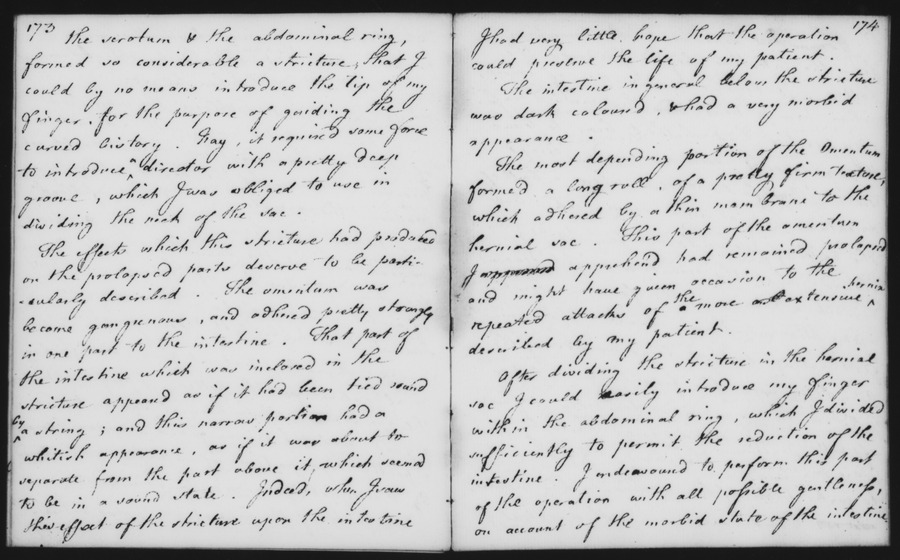 173
the scrotum & the abdominal ring,
formed so considerable a stricture, that I
could by no means introduce the tip of my
finger, for the purpose of guiding the
curved bistory. Nay, it required some force
to introduce ^ director with a pretty deep
groove, which I was obliged to use in
dividing the neck of the sac.
The effects which this stricture had produced
on the prolapsed parts deserve to be parti-
-cularly described. The omentum was
become gangrenous, and adhered pretty strongly
in one part to the intestine. That part of
the intestine which was inclosed in the
stricture appeared as if it had been tied round
by
^ a string; and this narrow portion had a
whitish appearance, as if it was about to
separate from the part above it, which seemed
to be in a sound state. Indeed, when I saw
this effect of the stricture upon the intestine
174
I had very little hope that the operation
could preserve the life of my patient.
The intestine in general below the stricture
was dark coloured, & had a very morbid
appearance.
The most depending portion of the Omentum
formed a long roll, of a pretty firm texture,
which adhered by a thin membrane to the
hernial sac. This part of the omentum
I apprehend had remained prolapsed
and might have given occasion to the
repeated attacks of the more extensive ^ hernia
described by my patient.
After dividing the stricture in the hernial
sac I could easily introduce my finger
within the abdominal ring, which I divided
sufficiently to permit the reduction of the
intestine. I endeavoured to perform this part
of the operation with all possible gentleness,
on account of the morbid state of the intestine